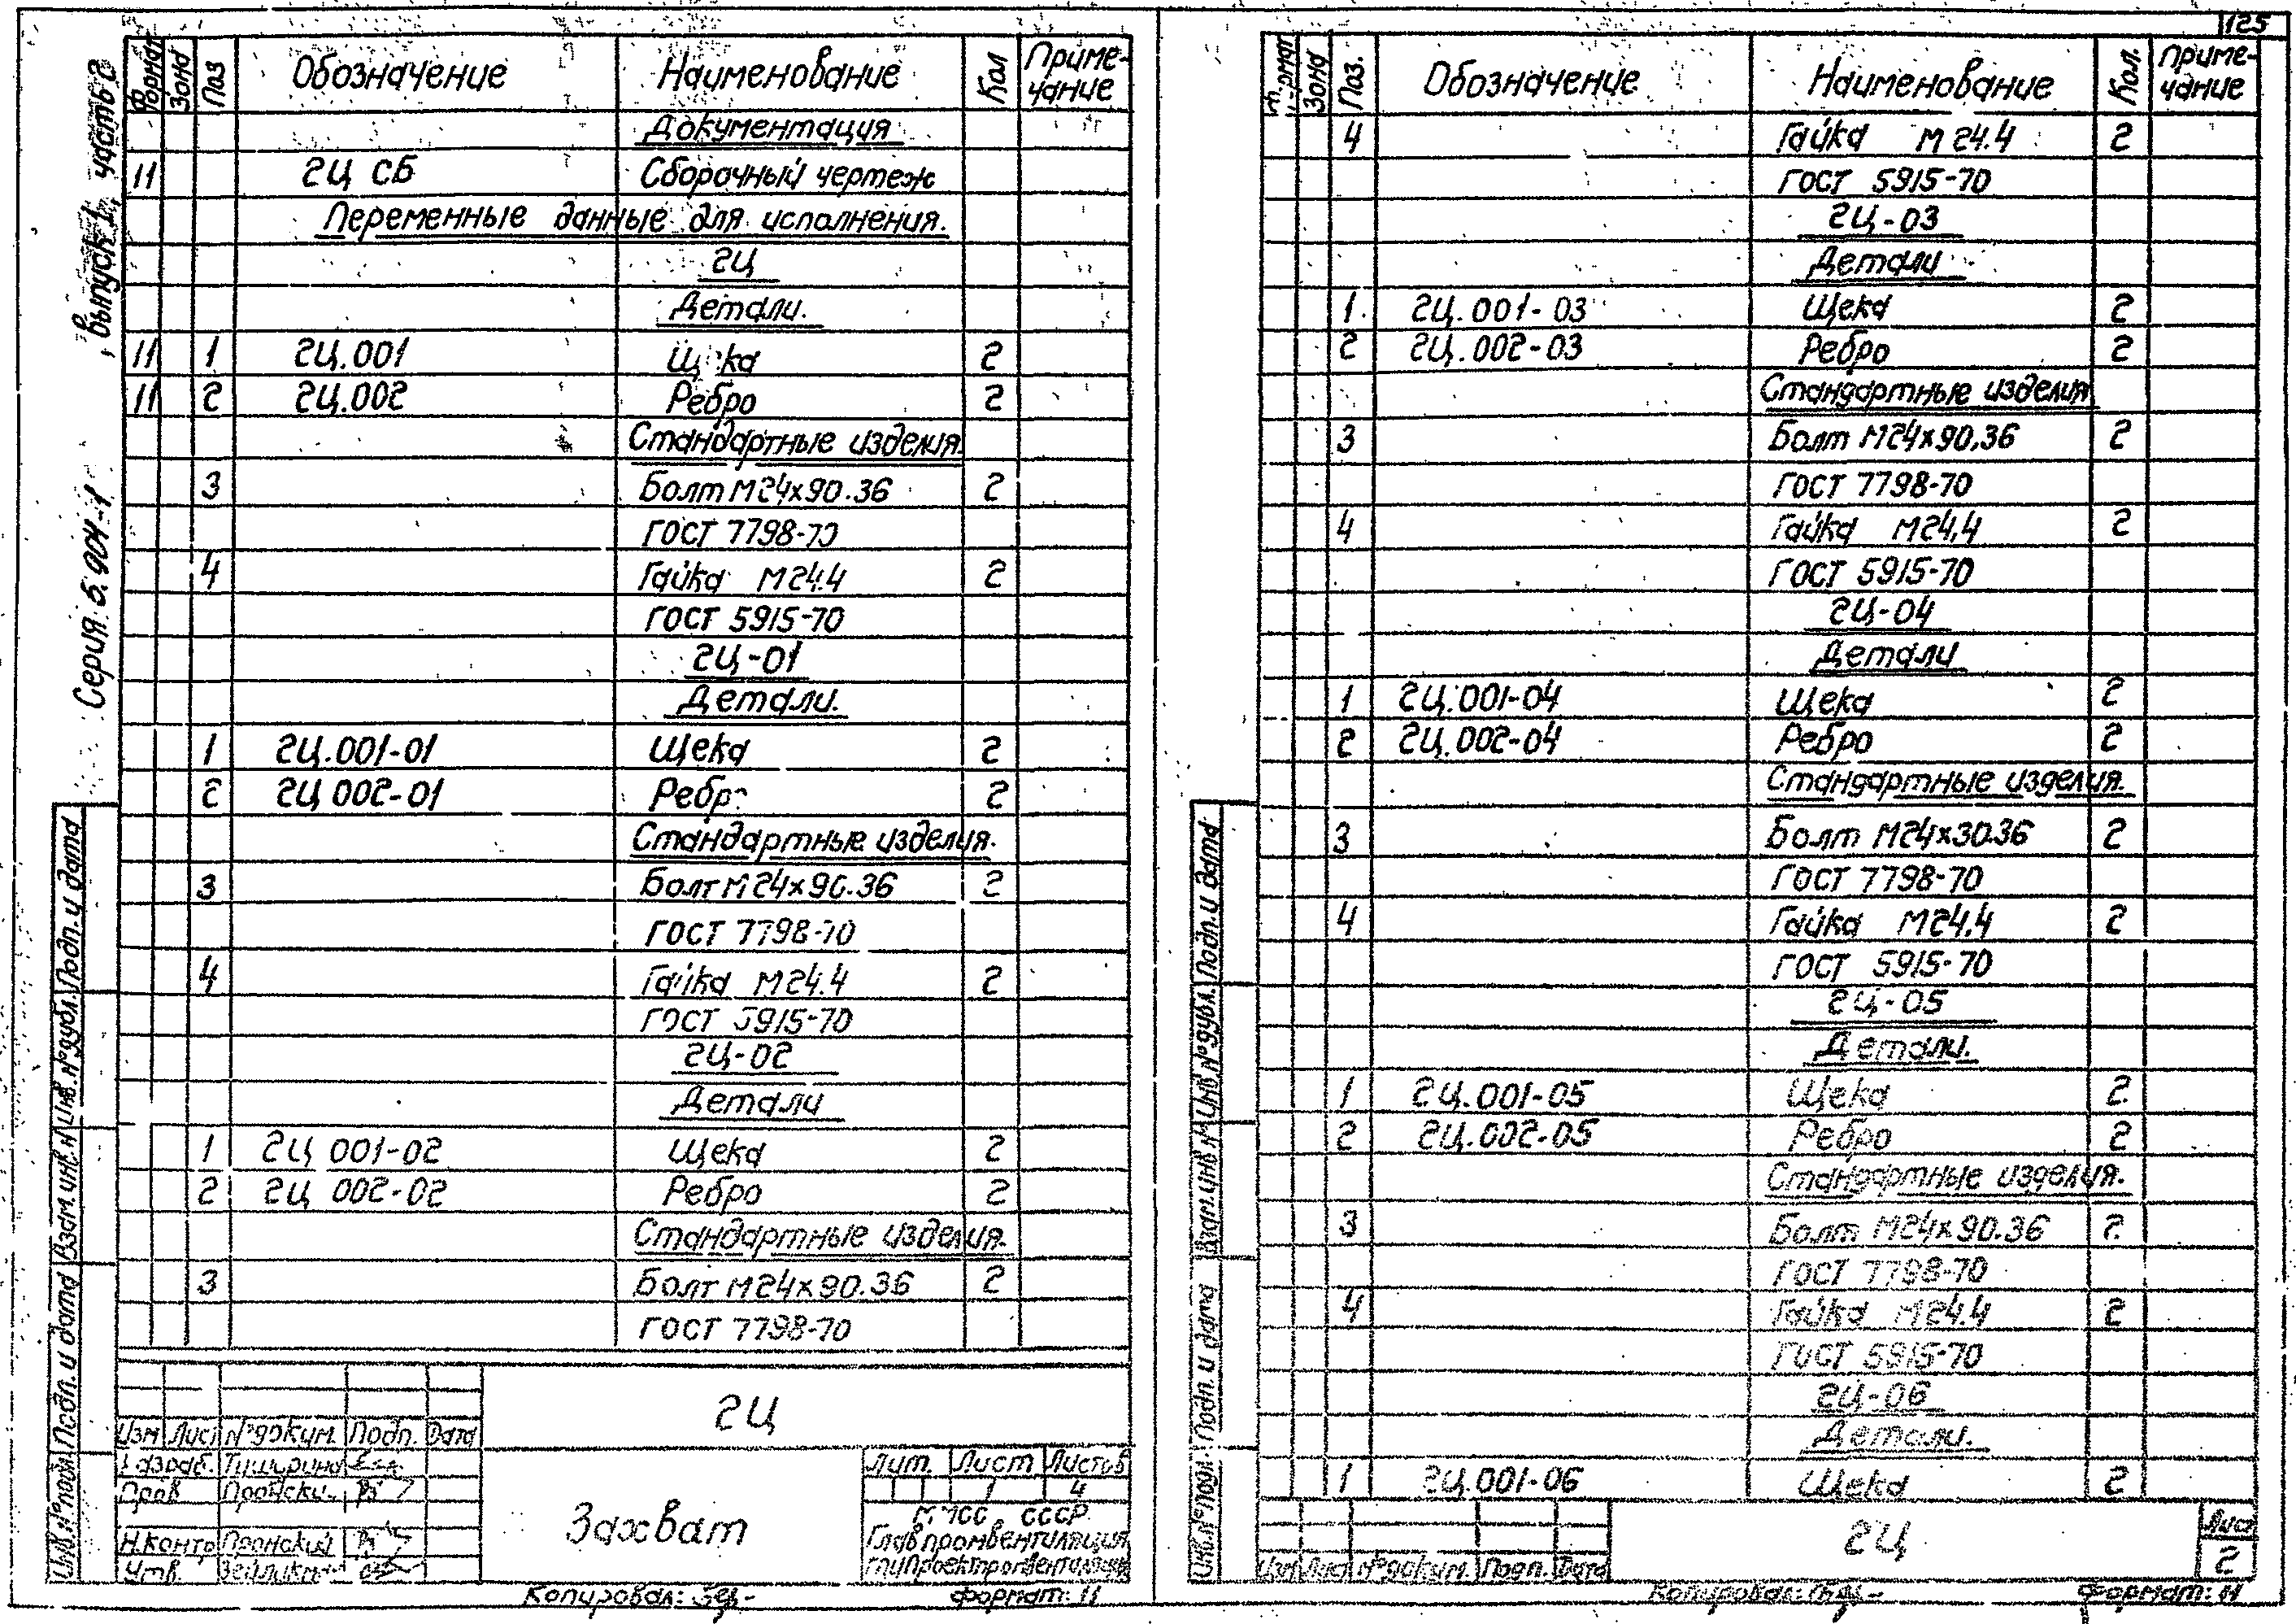 125
Серия 5.904-1, выпуск 1, часть 2
Формат Зона Поз Обозначение Наименование Кол Приме-
чание
Документация
11 2Ц СБ Сборочный чертеж
Переменные данные для исполнения.
2Ц
Детали.
11 1 2Ц.001 Щека 2
11 2 2Ц.002 Ребро 2
Стандартные изделия.
3 Болт М24х90.36 2
ГОСТ 7798-70
4 Гайка М24.4 2
ГОСТ 5915-70
2Ц-01
Детали.
1 2Ц.001-01 Щека 2
2 2Ц 002-01 Ребро 2
Стандартные изделия.
3 Болт М24х90.36 2
ГОСТ 7798-70
4 Гайка М24.4 2
ГОСТ 5915-70
2Ц-02
Детали
1 2Ц 001-02 Щека 2
2 2Ц 002-02 Ребро 2
Стандартные изделия.
3 Болт М24х90.36 2
ГОСТ 7798-70
Подп. и дата
Инв. № дубл.
Взам. инв. №
Подп. и дата
Инв. № подл.
2Ц
Изм Лист № докум. Подп. Дата
Разраб.
Пров
Н.контр Пронский
Утв.
Захват
Лит. Лист Листов
1 4
ММСС СССР
Главпромвентиляция
Копировал:
Формат: 11
Формат Зона Поз. Обозначение Наименование Кол. Приме-
чание
4 Гайка М24.4 2
ГОСТ 5915-70
2Ц-03
Детали
1 2Ц.001-03 Щека 2
2 2Ц.002-03 Ребро 2
Стандартные изделия
3 Болт М24х90.36 2
ГОСТ 7798-70
4 Гайка М24.4 2
ГОСТ 5915-70
2Ц-04
Детали
1 2Ц.001-04 Щека 2
2 2Ц.002-04 Ребро 2
Стандартные изделия.
3 Болт М24х30.36 2
ГОСТ 7798-70
4 Гайка М24.4 2
ГОСТ 5915-70
2Ц-05
Детали.
1 2Ц.001-05 Щека 2
2 2Ц.002-05 Ребро 2
Стандартные изделия.
3 Болт М24х90.36 2
ГОСТ 7798-70
4 Гайка М24.4 2
ГОСТ 5915-70
2Ц-06
Детали.
1 2Ц.001-06 Щека 2
Подп. и дата
Инв. № дубл.
Взам. инв. №
Подп. и дата
Инв. № подл.
Изм Лист № докум. Подп. Дата
2Ц
Лист
2
Копировал:
Формат: 11